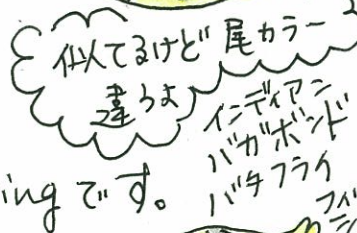 似てるけど 尾カラー
違うよ
インディアン
バガボンド
バタフライ
ingです。